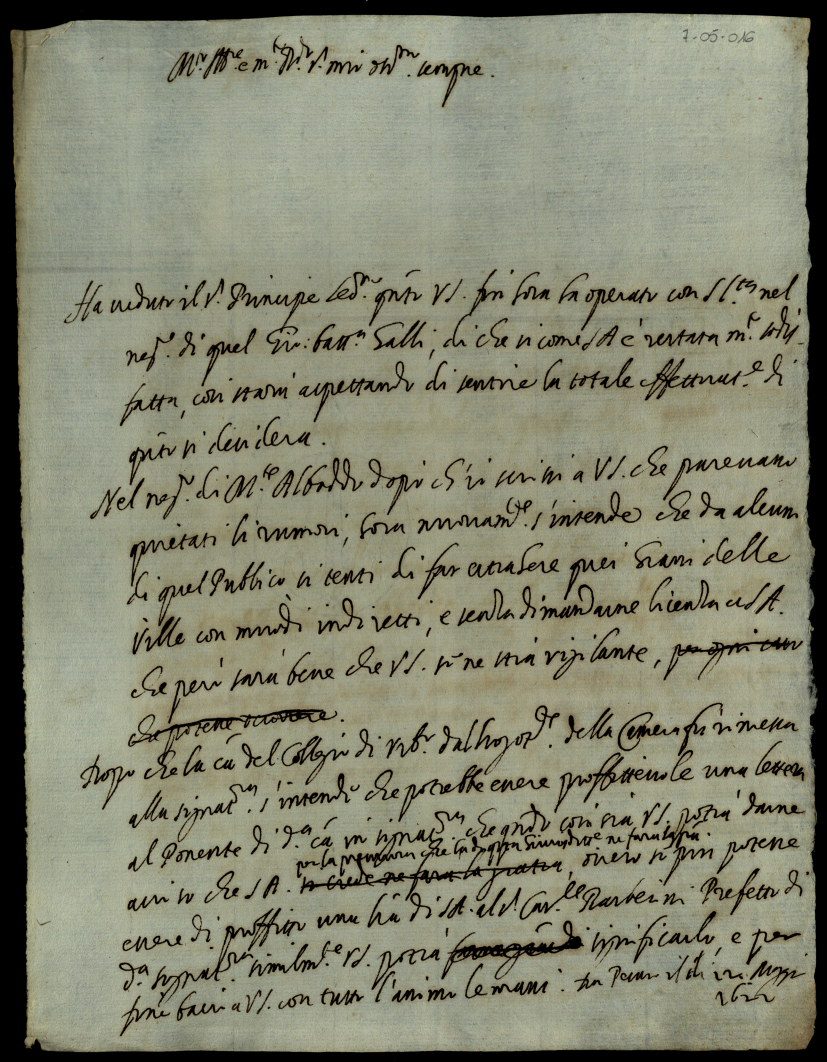 7-05-016
M.to Ill.re e m.to R.do S.r mio oss.mo sempre.
Ha veduto il S.r Principe q.nto VS. fin hora ha operato con S. S.tà nel
neg.o di quel Gio: batt.a Galli, di che si come SA è restata m.to sodis-
fatta, così starà aspettando di sentire la totale effettuat.e di
q.nto si desidera.
Nel neg.o di M.re Albaddo dopo ch'io scrissi a VS. che parevano
quietati li rumori, hora nuovam.te s'intende che da alcuni
di quel Publico si tenti di far estrahere quei Grani delle
Ville con modi indiretti, e senza dimandarne licenza a SA.
che però sarà bene che VS. se ne stia vigilante, per ogni caso
che potesse occorrere.
Dopo che la cā del Collegio di Urb.o della Camera fù rimessa
alla signat.ra s'intende che potrebbe essere proffittevole una lettera
al Ponente di d.a cā in signat.ra che q.ndo così sia VS. potrà darne
per la premura che ha di questa ne farà
aviso che SA. si crede ne farà la gratia, overo si può potesse
essere di proffitto una l'ra di SA. al S.r Car.le Barberini Prefetto di
d.a signat.ra similm.te VS. potrà significarlo, e per
fine bacio a VS. con tutto l'animo le mani. Da Pesaro il dì Maggio